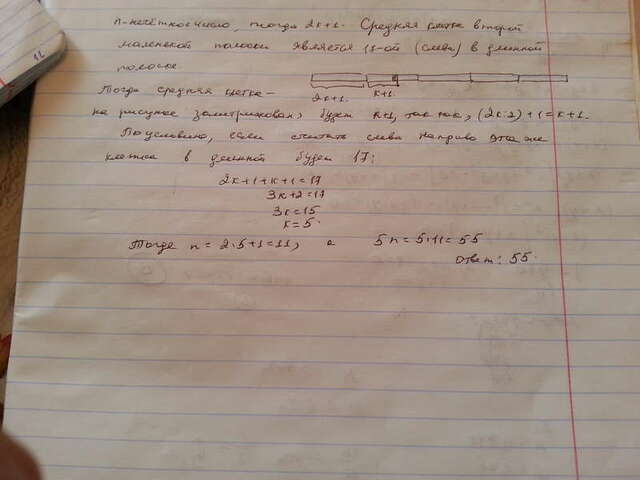 n-нечётное число, тогда 2k+1. Средняя клетка второй
маленькой полоски является 17-ой (слева) в длинной
полоске.
Тогда средняя клетка-
2k+1. k+1.
на рисунке заштрихована, будет k+1, так как, (2k:2)+1=k+1.
По условию, если считать слева направо эта же
клетка в длинной будет 17:
2k+1+k+1=17
3k+2=17
3k=15
k=5.
Тогда n=2·5+1=11, а 5n=5·11=55
Ответ: 55.
12